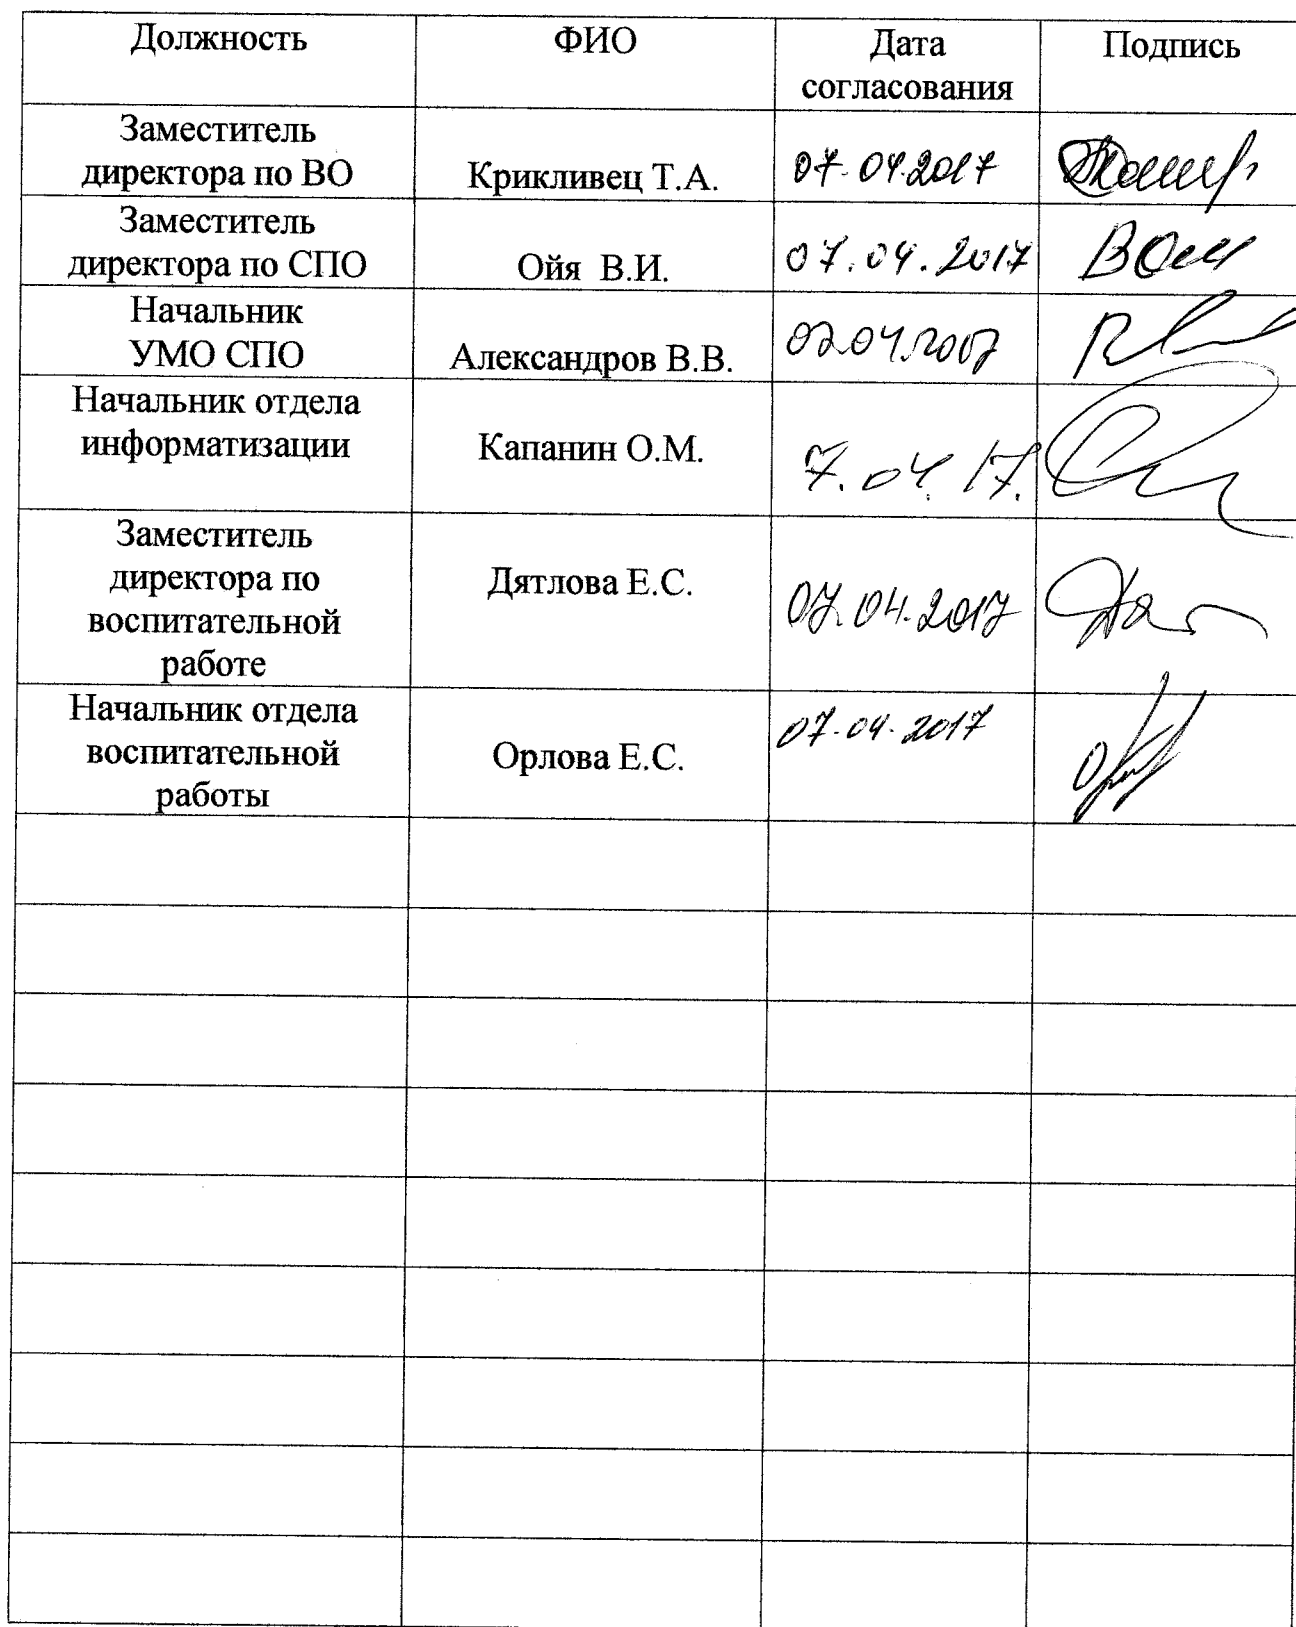 Должность
ФИО
Дата
согласования
Подпись
Заместитель
директора по ВО
Крикливец Т.А.
07.04.2017
Заместитель
директора по СПО
Ойя В.И.
07.04.2017
Начальник
УМО СПО
Александров В.В.
Начальник отдела
информатизации
Капанин О.М.
7.04.17.
Заместитель
директора по
воспитательной
работе
Дятлова Е.С.
07.04.2017
Начальник отдела
воспитательной
работы
Орлова Е.С.
07.04.2017